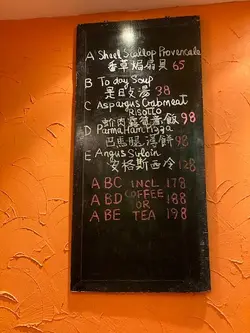 A Shell Scallop Provencale
香草焗扇貝 65
B Today Soup
是日餐湯 38
C Aspargus Crabmeat
Risotto
蝦肉露筍意飯 98
D Parma Ham Pizza
巴馬腿薄餅 98
E Angus Sirloin
安格斯西冷 128
A B C INCL 178
A B D COFFEE 188
OR
A B E TEA 198